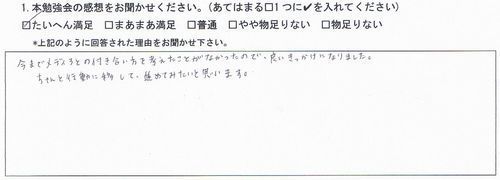 1. 本勉強会の感想をお聞かせください。（あてはまる□1つに✔を入れてください）
☑たいへん満足 □まあまあ満足 □普通 □やや物足りない □物足りない
*上記のように回答された理由をお聞かせ下さい。
今までメディアとの付き合い方を考えたことがなかったので、良いきっかけになりました。
ちゃんと行動に移して、進めてみたいと思います。